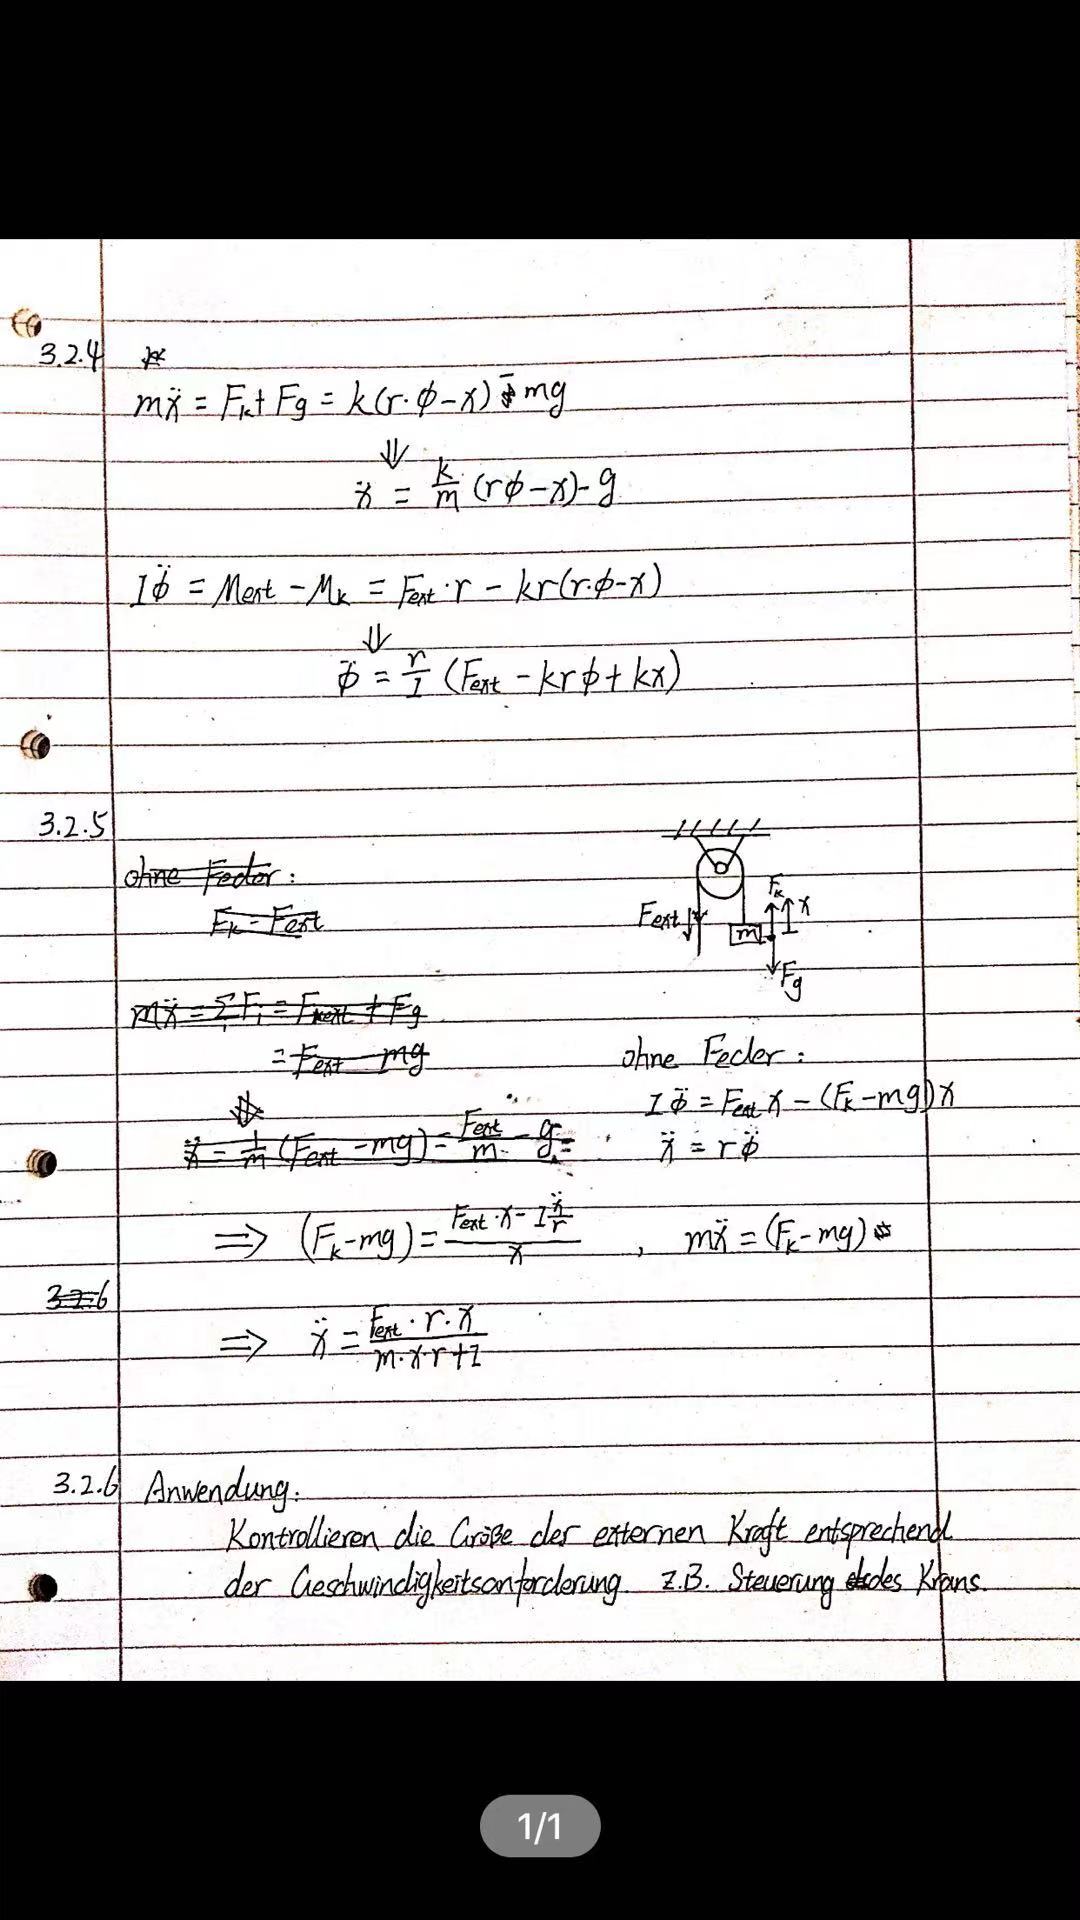 3.2.4
mẍ = Fk + Fg = k(r·ϕ-x) - mg
⇓
ẍ = k/m (rϕ-x) - g
Iϕ̈ = Mext - Mk = Fext·r - kr(r·ϕ-x)
⇓
ϕ̈ = r/I (Fext - krϕ + kx)
3.2.5
ohne Feder:
Fk = Fext
Fext
Fk
x
m
Fg
mẍ = ΣFi = Fext + Fg
= Fext - mg
ohne Feder:
Iϕ̈ = Fext x - (Fk - mg)x
ẍ = 1/m (Fext - mg) = Fext/m - g =
ẍ = rϕ̈
⇒ (Fk - mg) = (Fext·x - I ẍ/r)/x , mẍ = (Fk - mg)
3.2.6
⇒ ẍ = (Fext·r·x)/(m·x·r+I)
3.2.6 Anwendung:
Kontrollieren die Größe der externen Kraft entsprechend
der Geschwindigkeitsanforderung. z.B. Steuerung des Krans.
1/1